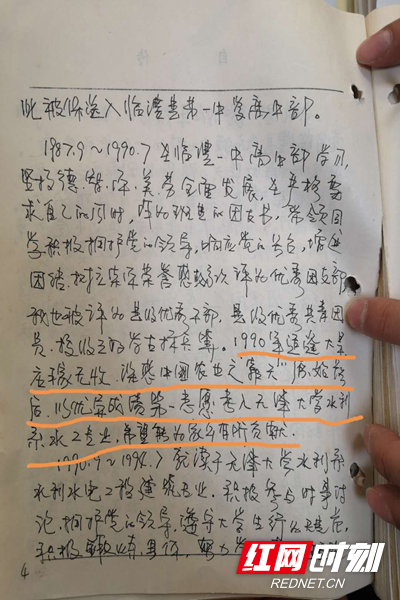 此被保送入临澧县第一中学高中部。
1987.9～1990.7 在临澧一中高中部学习,
坚持德、智、体、美劳全面发展,在严格要
求自己的同时,作为班里的团支书,带领同
学积极拥护党的领导,响应党的号召,
团结,班支集荣誉 评为优秀团支部
我也被评为县级优秀干部、县级优秀共青团
员、校级三好学生标兵等。1990年适逢大旱
庄稼无收,深感中国农业之“靠天”
后,以优异成绩第一志愿考入天津大学水利
系水工专业,希望能为家乡有所贡献。
1990.9～1994.7 就读于天津大学水利系
水利水电工程建筑专业。积极参与时事讨
论,拥护党的领导,遵守大学生行为规范,
积极
4
红网时刻
REDNET.CN